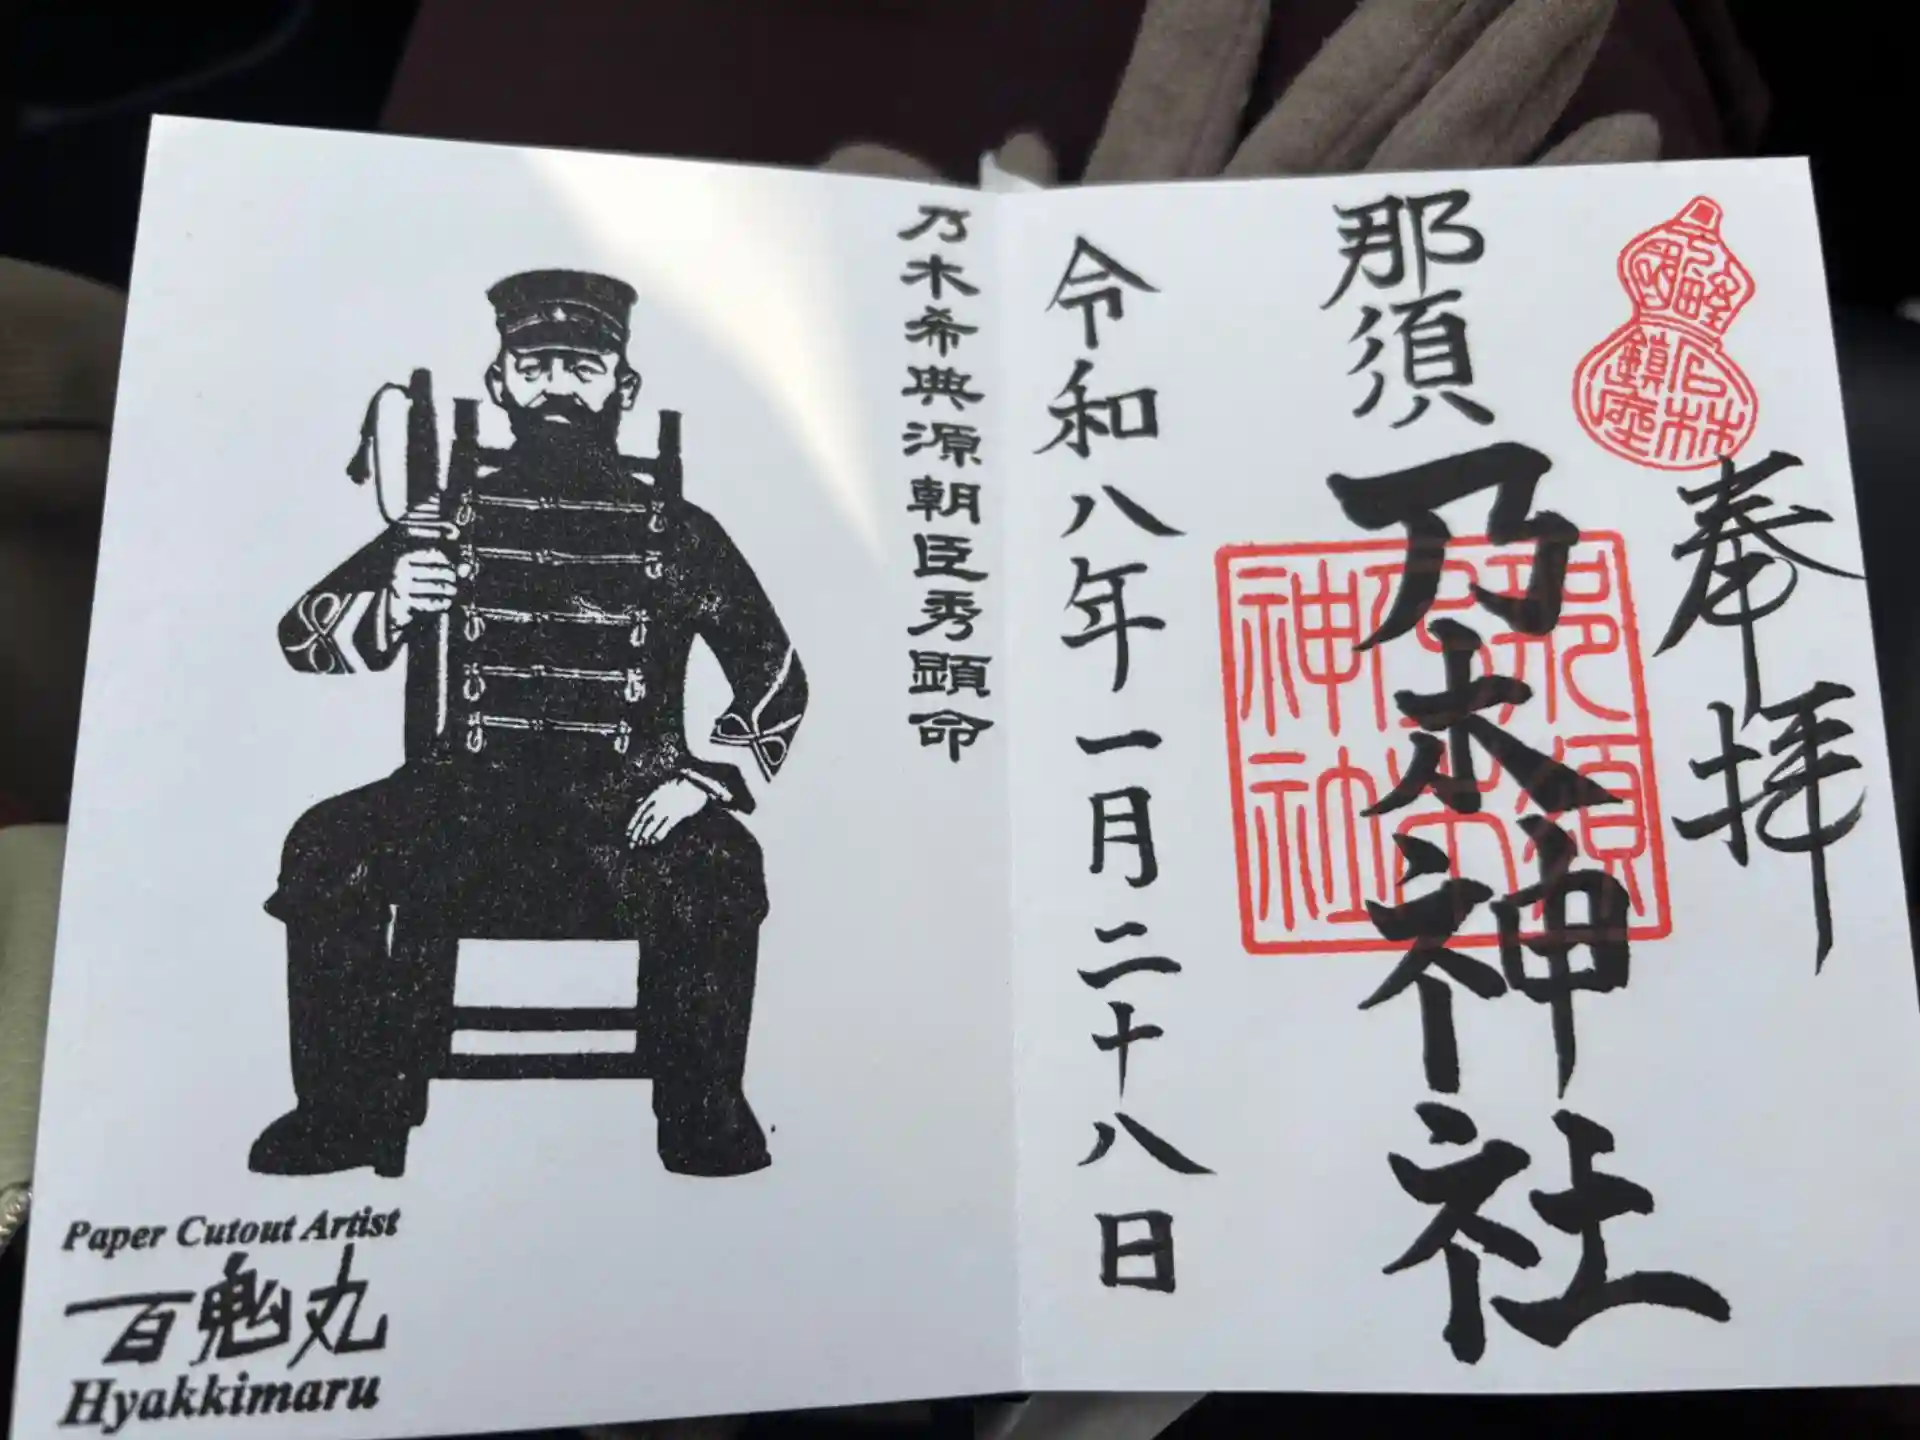 奉拝
那須乃木神社
那須乃木神社
令和八年一月二十八日
乃木希典源朝臣秀顕命
石林
鎮座
Paper Cutout Artist
百鬼丸
Hyakkimaru